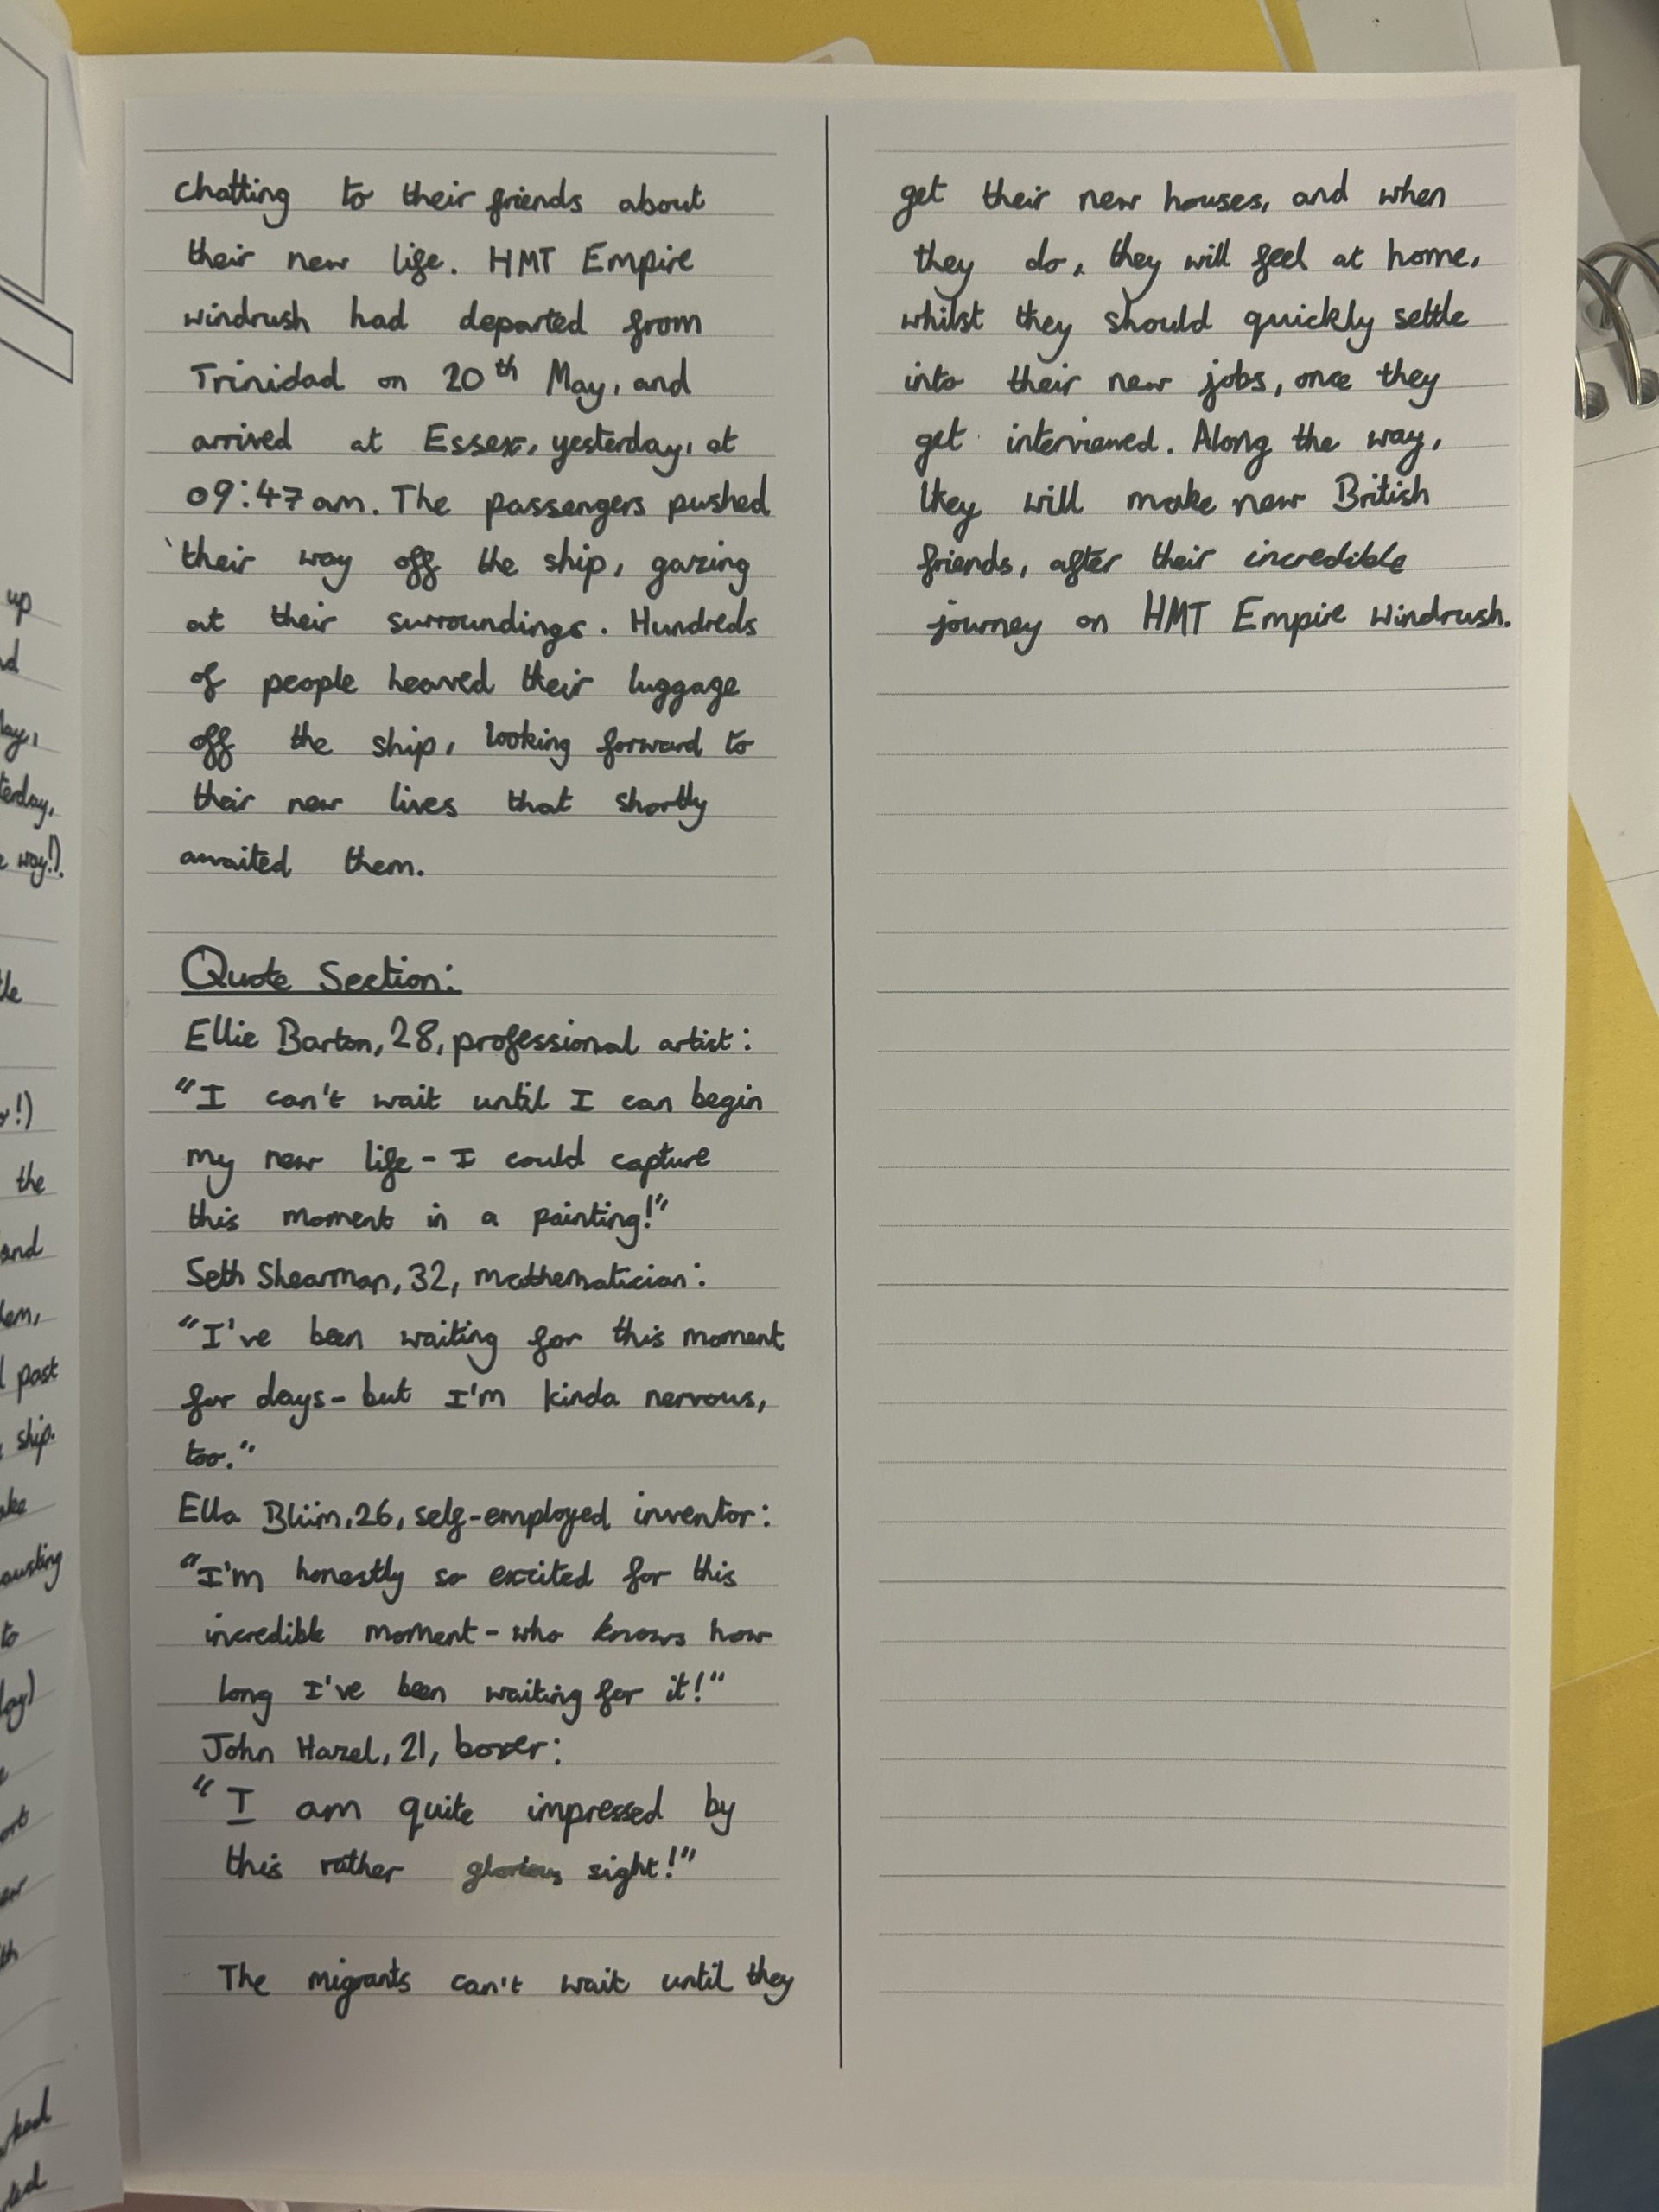 up
the
and
past
ship.
to
chatting to their friends about
their new life. HMT Empire
windrush had departed from
Trinidad on 20th May, and
arrived at Essex, yesterday, at
09:47am. The passengers pushed
their way off the ship, gazing
at their surroundings. Hundreds
of people heaved their luggage
off the ship, looking forward to
their new lives that shortly
awaited them.
Quote Section:
Ellie Barton, 28, professional artist:
"I can't wait until I can begin
my new life - I could capture
this moment in a painting!"
Seth Shearman, 32, mathematician:
"I've been waiting for this moment
for days - but I'm kinda nervous,
too."
Ella Blüm, 26, self-employed inventor:
"I'm honestly so excited for this
incredible moment - who knows how
long I've been waiting for it!"
John Hazel, 21, boxer:
"I am quite impressed by
this rather glorious sight!"
The migrants can't wait until they
get their new houses, and when
they do, they will feel at home,
whilst they should quickly settle
into their new jobs, once they
get interviewed. Along the way,
they will make new British
friends, after their incredible
journey on HMT Empire Windrush.